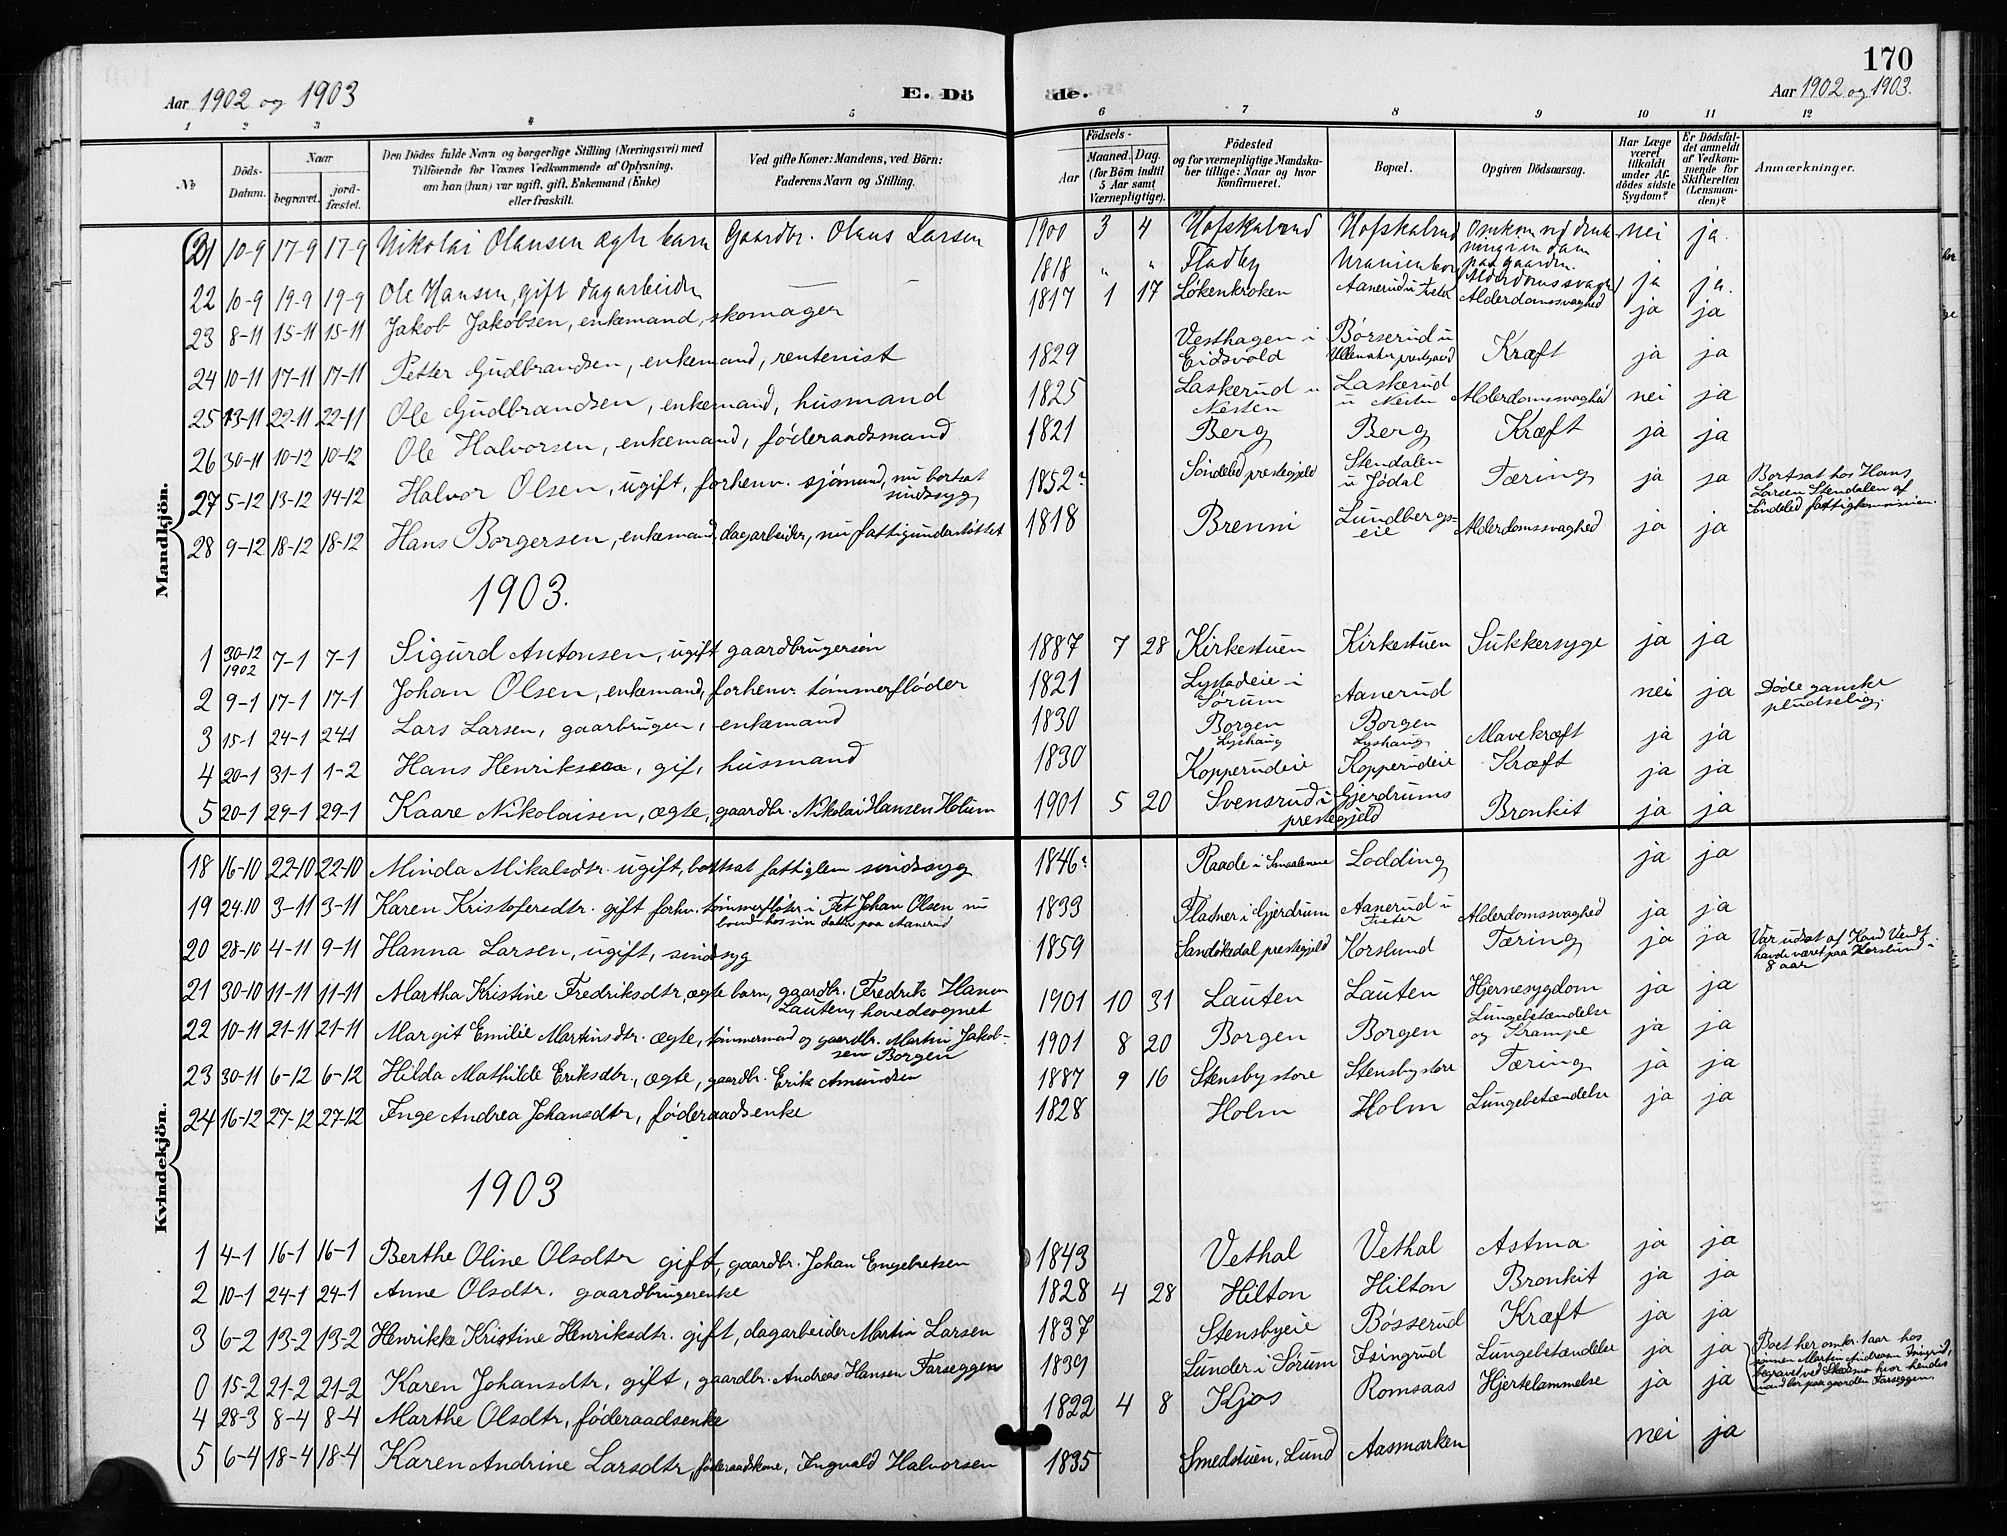 170
Aar 1902 og 1903 E. Dö
de. Aar 1902 og 1903.
1 2 3 4 5 6 7 8 9 10 11 12
№ Döds-Datum. Naar begravet. jord-fæstet. Den Dödes fulde Navn og borgerlige Stilling (Næringsvei) med Tilföiende for Voxnes Vedkommende af Oplysning. om han (hun) var ugift, gift, Enkemand (Enke) eller fraskilt. Ved gifte Koner: Mandens, ved Börn: Faderens Navn og Stilling. Födsels- Aar Maaned. Dag. (for Börn indtil 5 Aar samt Værnepligtige). Födested og for værnepligtige Mandskaber tillige: Naar og hvor konfirmeret. Bopæl. Opgiven Dödsaarsag. Har Læge været tilkaldt under Afdödes sidste Sygdom? Er Dödsfaldet anmeldt af Vedkommende for Skifteretten (Lensmanden)? Anmærkninger.
Mandkjön.
21 10-9 17-9 17-9 Nikolai Olausen ægte barn Gaardbr. Olaus Larsen 1900 3 4 Hofskalrud Hofskalrud Omkom ved drukning i en dam paa gaarden. nei ja.
22 10-9 19-9 19-9 Ole Hansen, gift dagarbeider — 1818 " " Fladby Uranienborg Alderdomssvaghed ja ja.
23 8-11 15-11 15-11 Jakob Jakobsen, enkemand, skomager — 1817 1 17 Løkenkroken Aanerud u Fieter Alderdomssvaghed ja ja
24 10-11 17-11 17-11 Petter Gudbrandsen, enkemand, rentenist 1829 Vesthagen i Eidsvold Børserud u Ullensaker prestgaard Kræft ja ja
25 13-11 22-11 22-11 Ole Gudbrandsen, enkemand, husmand 1825 Laskerud u Nesten Laskerud u Nesten Alderdomssvaghed nei ja
26 30-11 10-12 10-12 Ole Halvorsen, enkemand, føderaadsmand 1821 Berg Berg Kræft ja ja
27 5-12 13-12 14-12 Halvor Olsen, ugift, forhenv. sjömand, nu bortsat sindssyg 1852? Söndeled prestegjeld Stendalen u Jødal Tæring ja ja Bortsat hos Hans Larsen Stendalen af Söndeled fattigkommission.
28 9-12 18-12 18-12 Hans Borgersen, enkemand dagarbeider, nu fattigunderstøttet 1818 Brenni Lundbergs-eie Alderdomssvaghed ja ja
1903.
1 30-12 1902 7-1 7-1 Sigurd Antonsen, ugift gaardbrugersön 1887 7 28 Kirkestuen Kirkestuen Sukkersyge ja ja
2 9-1 17-1 17-1 Johan Olsen, enkemand, forhenv. tömmerfløder 1821 Lystadeie i Sørum Aanerud nei ja Døde ganske pludselig.
3 15-1 24-1 24-1 Lars Larsen, gaarbruger, enkemand 1830 Borgen Lyshaug Borgen Lyshaug Mavekræft ja ja
4 20-1 31-1 1-2 Hans Henriksen, gif, husmand 1830 Kopperudeie Kopperudeie Kræft ja ja
5 20-1 29-1 29-1 Kaare Nikolaisen, ægte, gaardbr. Nikolai Hansen Holum 1901 5 20 Svensrud i Gjerdrums prestegjeld Bronkit ja ja
Kvindekjön.
18 16-10 22-10 22-10 Minda Mikalsdtr. ugift, bortsat fattiglem sindssyg 1846? Raade i Smaalenene Lodding ja ja
19 24.10 3-11 3-11 Karen Kristofersdtr. gift forhv. tömmerflöter i Fet Johan Olsen nu boende hos sin datter paa Aanerud 1833 Flatner i Gjerdrum Aanerud u Fieter Alderdomssvaghed ja ja
20 28-10 4-11 9-11 Hanna Larsen, ugift, sindssyg 1859 Sandökedal prestegjeld Korslund Tæring ja ja Var udsat af havde været paa Korslund i 8 aar
21 30-10 11-11 11-11 Martha Kristine Fredriksdtr, ægte barn, gaardbr. Fredrik Hansen Lauten, hovedsognet 1901 10 31 Lauten Lauten Hjernesygdom ja ja
22 10-11 21-11 21-11 Margit Emilie Martinsdtr. ægte, tömmermand og gaardbr. Martin Jakobsen Borgen 1901 8 20 Borgen Borgen Lungebetændelse og Krampe ja ja
23 30-11 6-12 6-12 Hilda Mathilde Eriksdtr., ægte, gaardbr. Erik Amundsen 1887 9 16 Stensby store Stensby store Tæring ja ja
24 16-12 27-12 27-12 Inge Andrea Johansdtr, føderaadsenke 1828 Holm Holm Lungebetændelse ja ja
1903
1 4-1 16-1 16-1 Berthe Oline Olsdtr gift, gaardbr. Johan Engebretsen 1843 Vethal Vethal Astma ja ja
2 10-1 24-1 24-1 Anne Olsdtr. gaardbrugerenke 1828 4 28 Hilton Hilton Bronkit ja ja
3 6-2 13-2 13-2 Henrikke Kristine Henriksdtr. gift, dagarbeider Martin Larsen 1837 Stensbyeie Bösserud Kræft ja ja
0 15-2 21-2 21-2 Karen Johansdtr, gift, gaardbr. Andreas Hansen Farseggen 1839 Lunder i Sørum Isingrud Lungebetændelse ja ja Boet her omkr. 1 aar hos sønnen Martin Andreasen Isingrud, begravet ved hvor hendes mand bor paa gaarden Farseggen.
4 28-3 8-4 8-4 Marthe Olsdtr, føderaadsenke 1822 4 8 Kjos Romsaas Hjertelammelse ja ja
5 6-4 18-4 18-4 Karen Andrine Larsdtr, føderaadskone, Ingvald Halvorsen 1835 Smedstuen, Lund Aasmarken nei ja